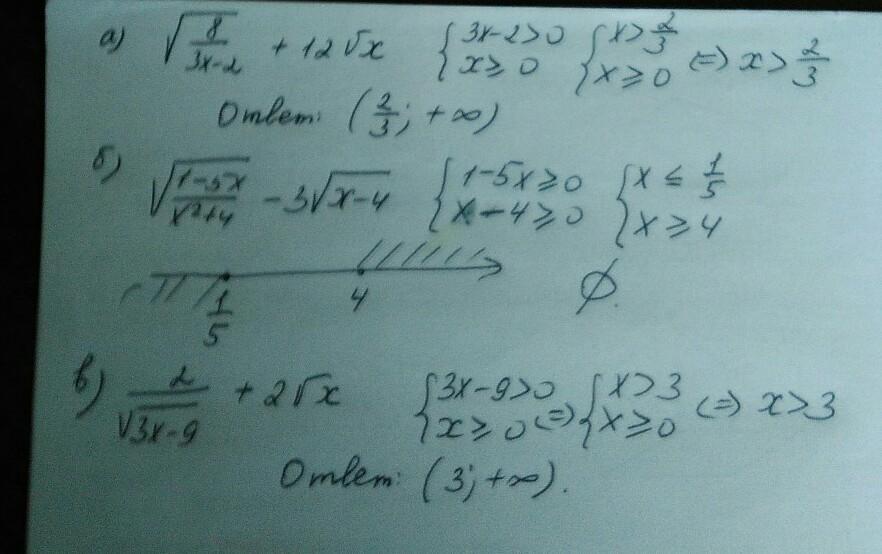 а) √(8/(3x-2)) + 12√x { 3x-2>0 x≥0 { x>2/3 x≥0 (=) x>2/3
Ответ: (2/3; +∞)
б) √((1-5x)/(x²+4)) - 3√(x-4) { 1-5x≥0 x-4≥0 { x≤1/5 x≥4
1/5 4 ∅.
в) 2/√(3x-9) + 2√x { 3x-9>0 x≥0 (=) { x>3 x≥0 (=) x>3
Ответ: (3; +∞).